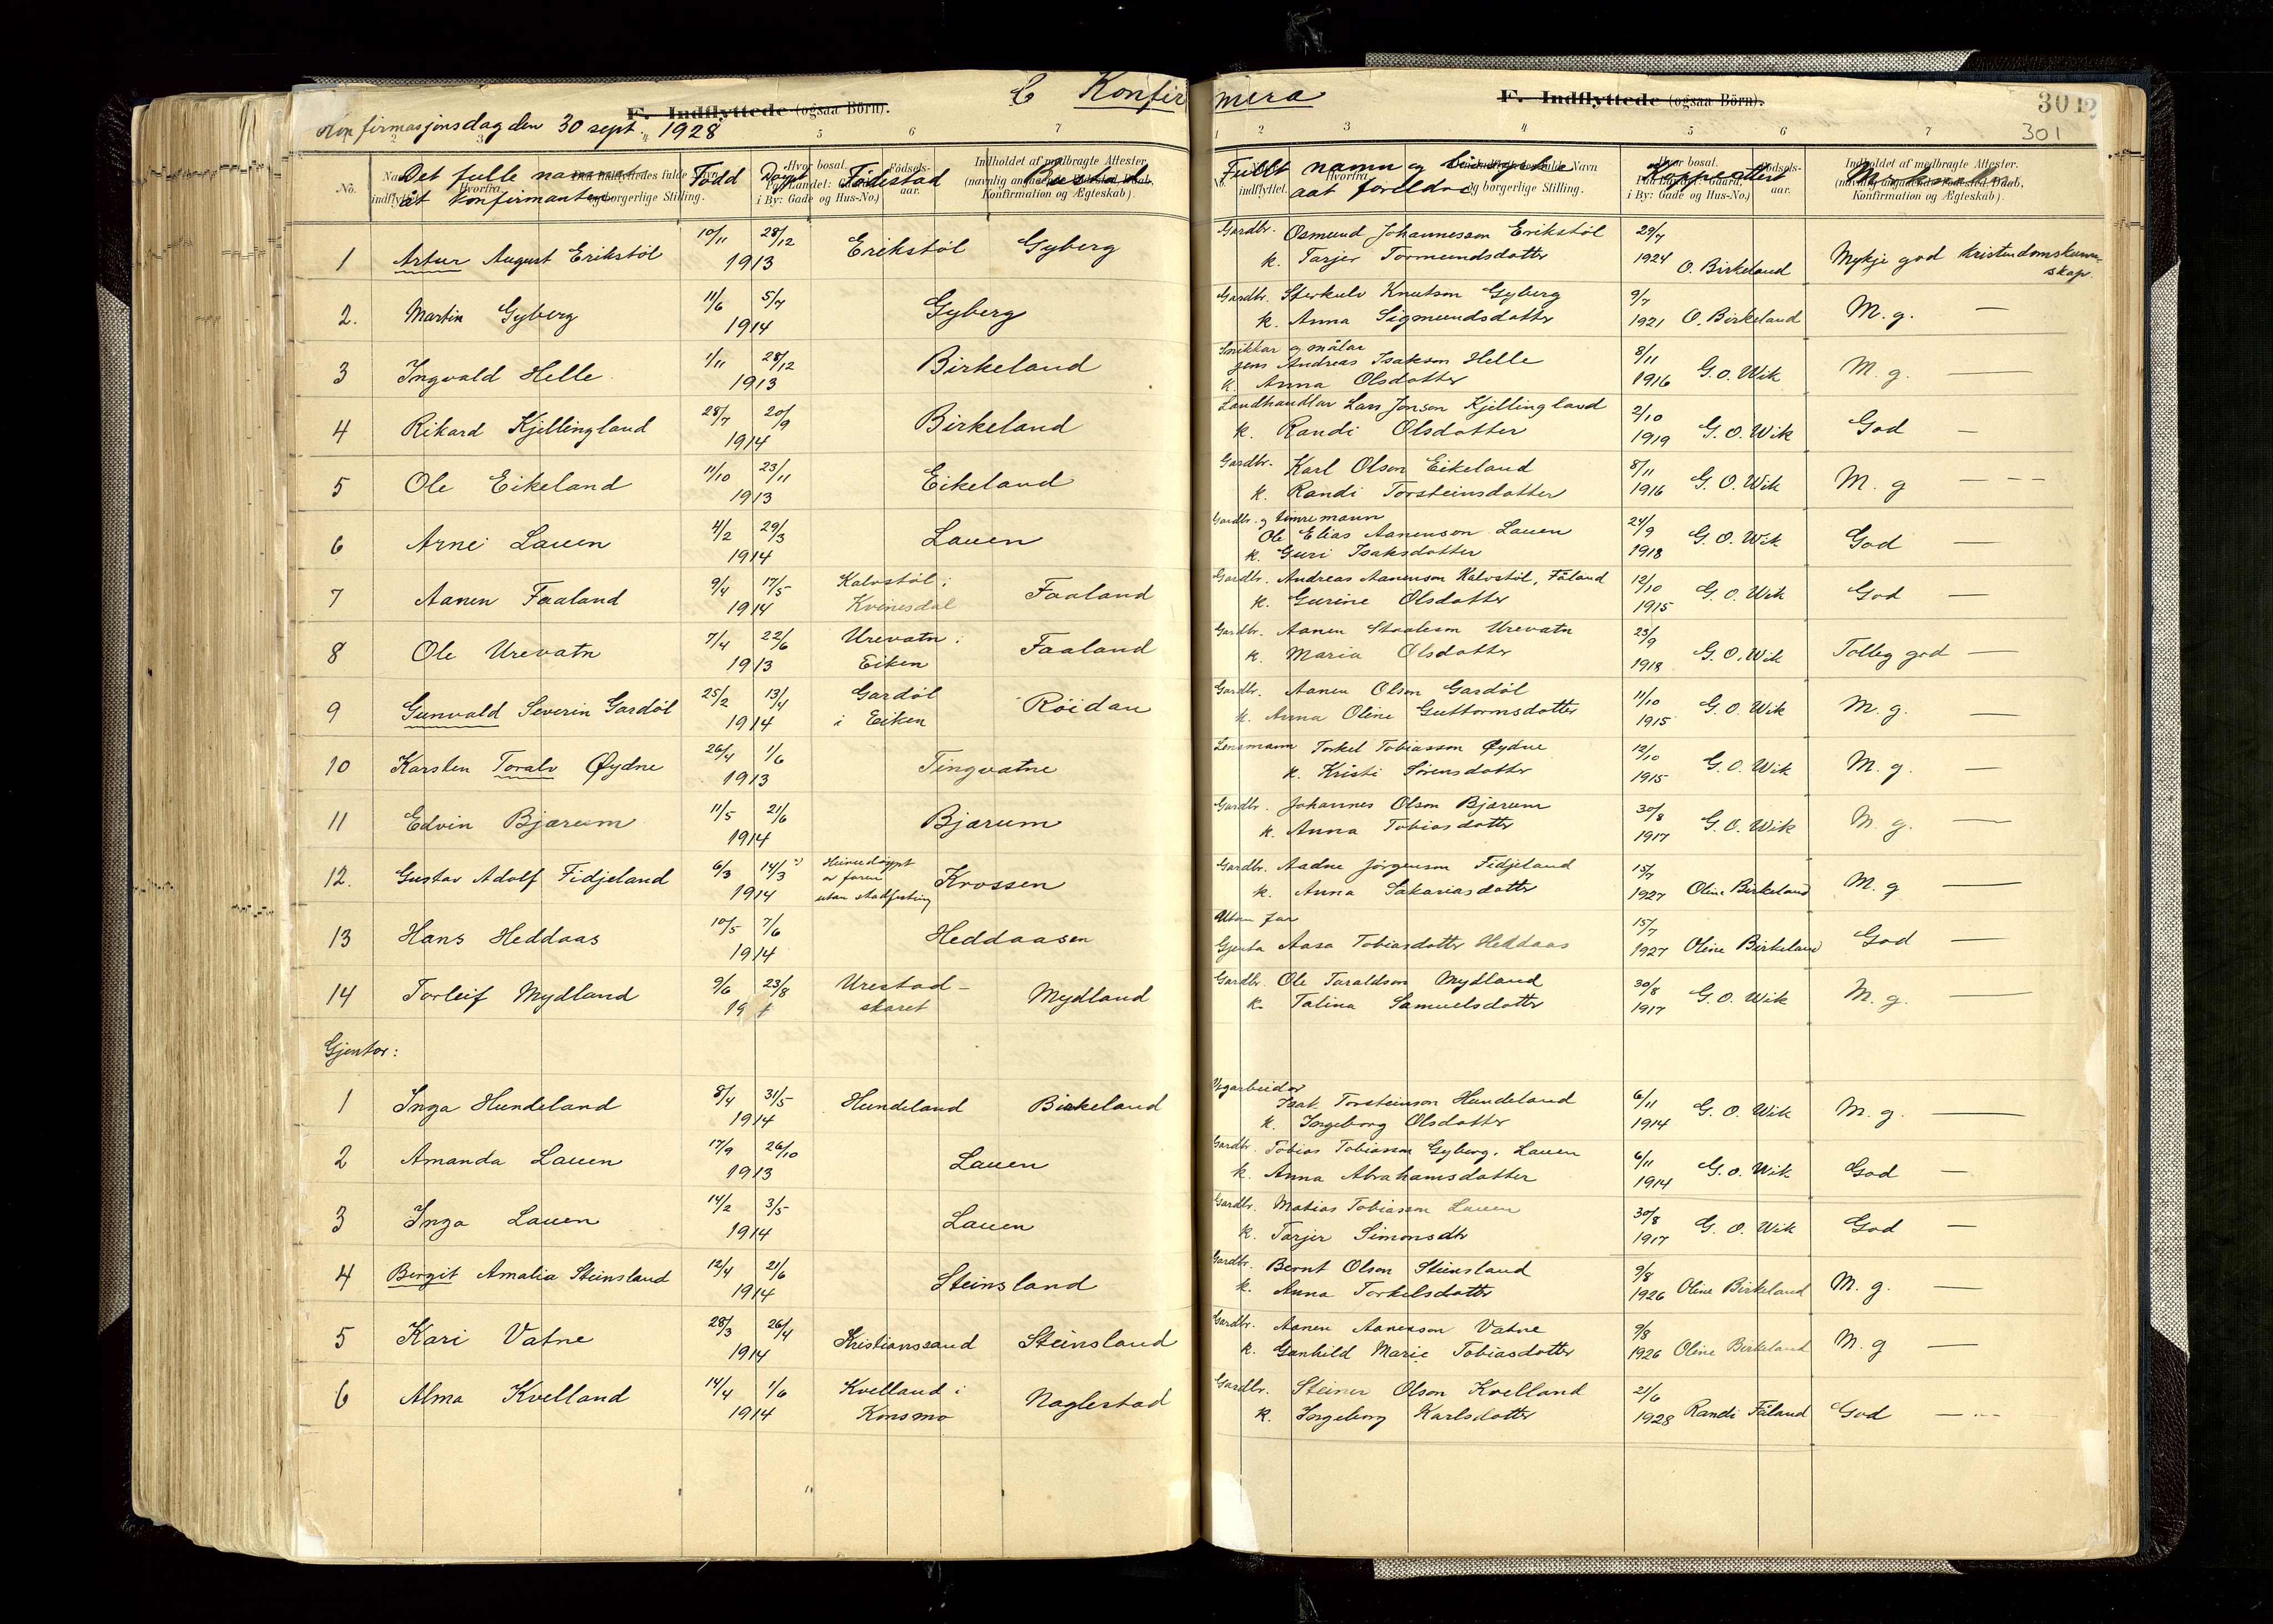 C Konfirmera
F. Indflyttede (ogsaa Börn).
F. Indflyttede (ogsaa Börn).
3012
301
Konfirmasjonsdag den 30 sept. 1928
No. Det fulle namnet Född Döypt Födestad Bustad
åt konfirmanten
Hvor bosat. Fødsels- Indholdet af medbragte Attester
i By: Gade og Hus-No.) aar. Konfirmation og Ægteskab).
Fullt namn og Koppesett
aat foreldre
1 Artur August Erikstöl 10/11 28/12 1913 Erikstöl Gyberg
Gardbr. Osmund Johannesson Erikstöl 29/7
k. Tarjer Tormundsdotter 1924 O. Birkeland Mykje god Kristendomskunnskap.
2. Martin Gyberg 11/6 5/7 1914 Gyberg
Gardbr. Sterkulv Knutson Gyberg 9/7
k. Anna Sigmundsdotter 1921 O. Birkeland M. g. —
3 Ingvald Helle 1/11 28/12 1913 Birkeland
Snikkar og målar
Jens Andreas Isakson Helle 8/11
k. Anna Olsdotter 1916 G. O. Wik M. g. —
4 Rikard Kjellingland 28/7 20/9 1914 Birkeland
Landhandlar Lars Jonson Kjellingland 2/10
k. Randi Olsdotter 1919 G. O. Wik God —
5 Ole Eikeland 11/10 23/11 1913 Eikeland
Gardbr. Karl Olson Eikeland 8/11
k. Randi Torsteinsdotter 1916 G. O. Wik M. g — - -
6 Arne Lauen 4/2 29/3 1914 Lauen
Gardbr. og timremann
Ole Elias Aanenson Lauen 24/9
k. Guri Isaksdotter 1918 G. O. Wik God —
7 Aanen Faaland 9/4 17/5 1914 Kalvstöl i Kvinesdal Faaland
Gardbr. Andreas Aanenson Kalvstöl, Fåland 12/10
k. Gurine Olsdotter 1915 G. O. Wik God —
8 Ole Urevatn 7/4 22/6 1913 Urevatn i Eiken Faaland
Gardbr. Aanen Staaleson Urevatn 23/9
k. Maria Olsdotter 1918 G. O. Wik Tolleg god —
9 Gunvald Severin Gardöl 25/2 13/4 1914 Gardöl i Eiken Röidan
Gardbr. Aanen Olson Gardöl 11/10
k. Anna Oline Guttormsdotter 1915 G. O. Wik M. g. —
10 Karsten Toralv Øydne 26/4 1/6 1913 Tingvatne
Lensmann Torkel Tobiasson Øydne 12/10
k. Kristi Sörensdotter 1915 G. O. Wik M. g. —
11 Edvin Bjærum 11/5 21/6 1914 Bjærum
Gardbr. Johannes Olson Bjærum 30/8
k. Anna Tobiasdotter 1917 G. O. Wik M. g. —
12. Gustav Adolf Fidjeland 6/3 14/3 1914 Heimedöypt av faren utan stadfesting Krossen
Gardbr. Aadne Jörgenson Fidjeland 15/7
k. Anna Sakariasdotter 1927 Oline Birkeland M. g —
13 Hans Heddaas 10/5 7/6 1914 Heddaasen
Utan far 15/7
Gjenta Aasa Tobiasdotter Heddaas 1927 Oline Birkeland God —
14 Torleif Mydland 9/6 23/8 Urestad-skaret Mydland
Gardbr. Ole Taraldson Mydland 30/8
k. Talina Samuelsdotter 1917 G. O. Wik M. g. —
Gjentor:
1 Inga Hundeland 8/4 31/5 1914 Hundeland Birkeland
Vegarbeidar
Isak Torsteinson Hundeland 6/11
k. Ingeborg Olsdotter 1914 G. O. Wik M. g. —
2 Amanda Lauen 17/9 26/10 1913 Lauen
Gardbr. Tobias Tobiasson Gyberg, Lauen 6/11
k. Anna Abrahamsdotter 1914 G. O. Wik God —
3 Inga Lauen 14/2 3/5 1914 Lauen
Gardbr. Matias Tobiasson Lauen 30/8
k. Tarjer Simonsdtr 1917 G. O. Wik God —
4 Bergit Amalia Steinsland 12/4 21/6 1914 Steinsland
Gardbr. Bernt Olson Steinsland 9/8
k. Anna Torkelsdotter 1926 Oline Birkeland M. g. —
5 Kari Vatne 28/3 26/4 1914 Kristianssand Steinsland
Gardbr. Aanen Aanenson Vatne 9/8
k. Gunhild Marie Tobiasdotter 1926 Oline Birkeland M. g —
6 Alma Kvelland 14/4 1/6 1914 Kvelland i Konsmo Naglestad
Gardbr. Steiner Olson Kvelland 21/6
k. Ingeborg Karlsdotter 1928 Randi Fåland God —